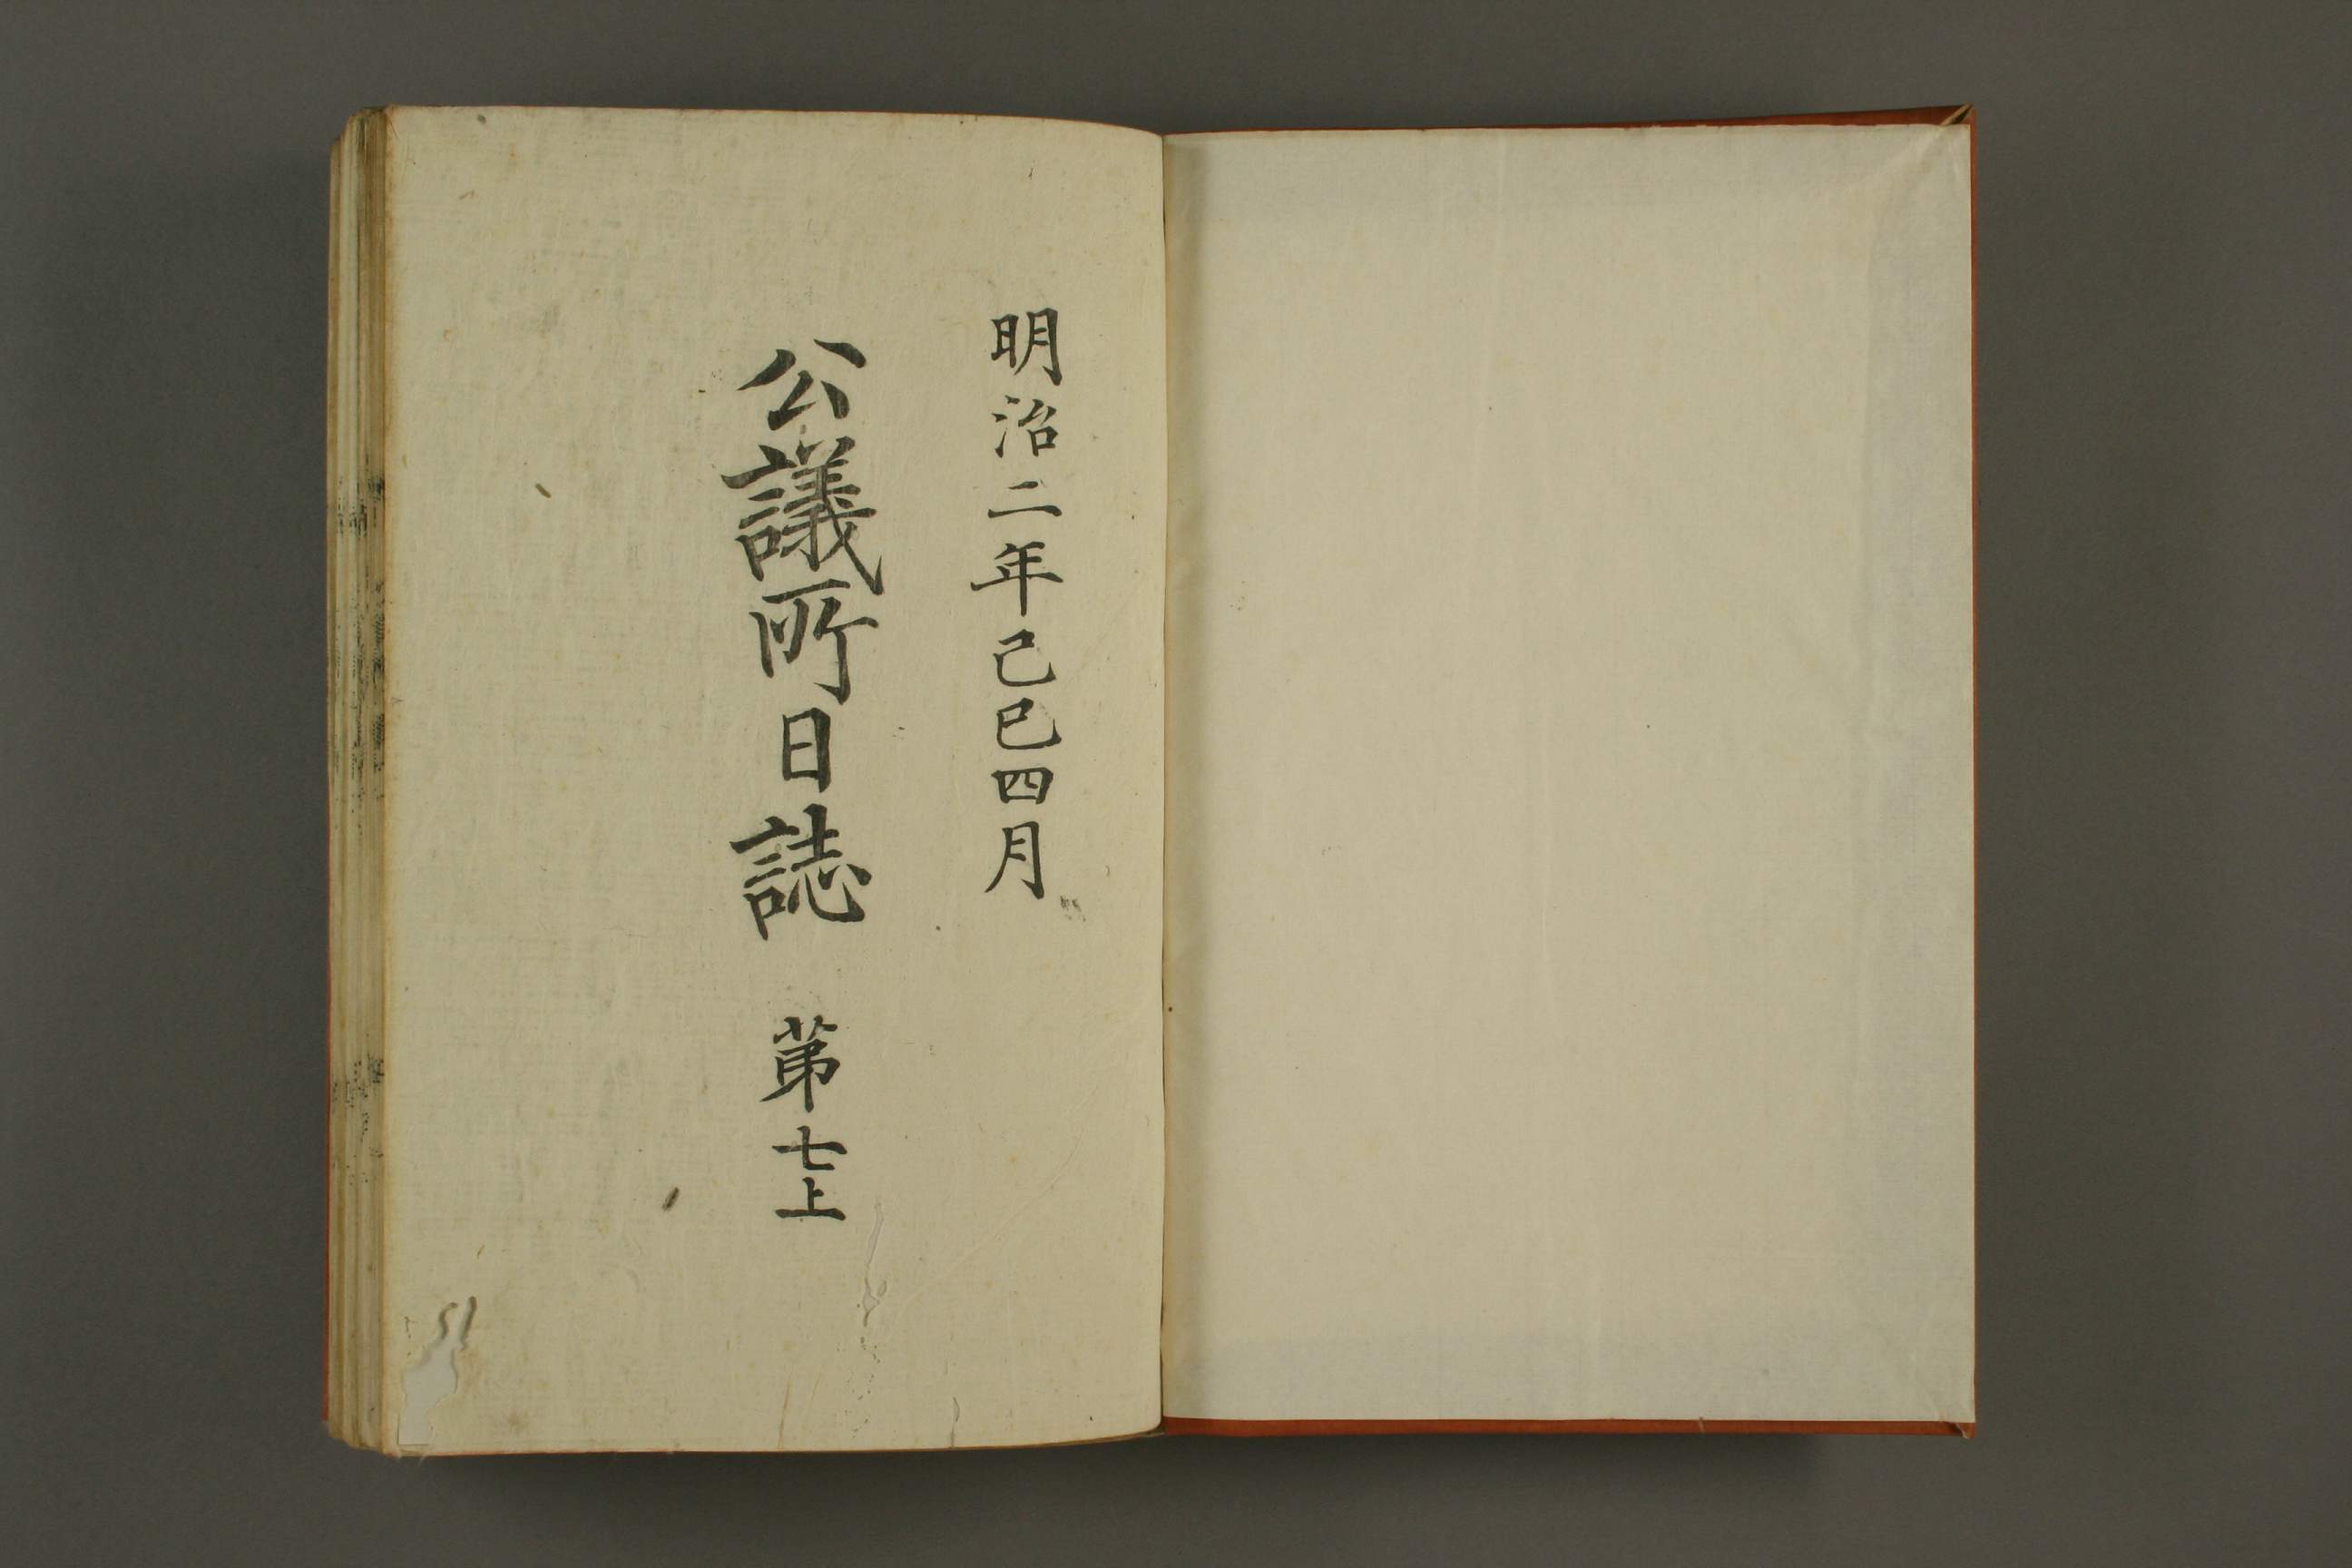 明治二年己巳四月
公議所日誌 第七上